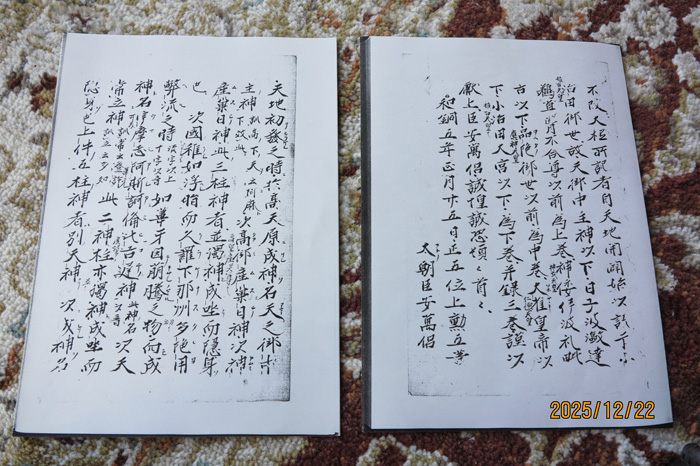 不改大抵所記者自天地開闢始以訖于小
治田御世故天御中主神以下日子波瀲建
鵜草葺不合尊以前為上巻神倭伊波礼毗
古以下品陀御世以前為中巻大雀皇帝以
下小治田大宮以下為下巻并録三巻謹以
獻上臣安萬侶誠惶誠恐頓々首々
和銅五年正月廿五日正五位上勲五等
太朝臣安萬侶
天地初發之時於高天原成神名天之御中
主神訓高下天云阿麻下效此次高御産巣日神次神
産巣日神此三柱神者並獨神成坐而隱身
也 次國稚如浮脂而久羅下那洲多陀用
弊流之時流字以上十字以音如葦牙因萌騰之物而成
神名宇摩志阿斯訶備比古遅神此神名以音次天
常立神訓常云登許訓立云多知此二神柱亦獨神成坐而
隱身也上件五柱神者別天神 次成神名
2025/12/22